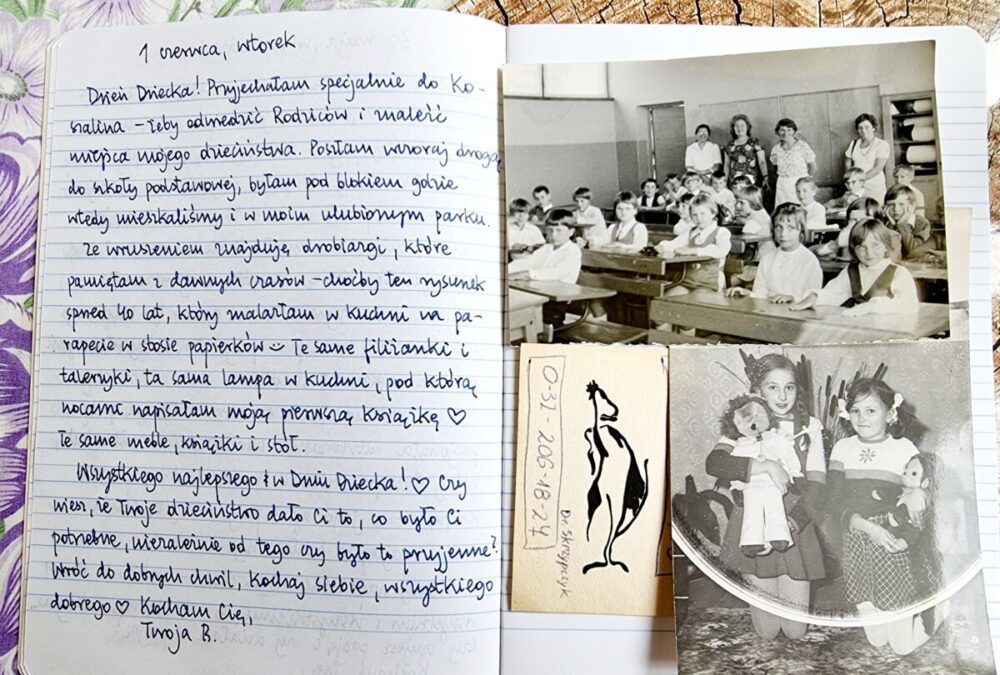 1 czerwca, wtorek
Dzień Dziecka! Przyjechałam specjalnie do Ko-
szalina – żeby odwiedzić Rodziców i znaleźć
miejsca mojego dzieciństwa. Poszłam wczoraj drogą
do szkoły podstawowej, byłam pod blokiem gdzie
wtedy mieszkaliśmy i w moim ulubionym parku.
Ze wzruszeniem znajduję drobiazgi, które
pamiętam z dawnych czasów – choćby ten rysunek
sprzed 40 lat, który znalazłam w kuchni na pa-
rapecie w stosie papierków :) Te same filiżanki i
talerzyki, ta sama lampa w kuchni, pod którą
nocami napisałam moją pierwszą książkę ♡
Te same meble, książki i stół.
Wszystkiego najlepszego w Dniu Dziecka! ♡ Czy
wiesz, że Twoje dzieciństwo dało Ci to, co było Ci
potrzebne, niezależnie od tego czy było to przyjemne?
Wróć do dobrych chwil, kochaj siebie, wszystkiego
dobrego ♡ Kocham Cię,
Twoja B.
0-32-206-18-24
Dr. Skrzypczyk